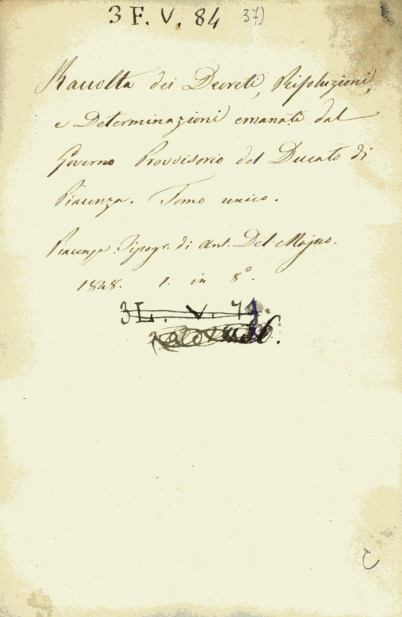 3 F. V. 84 37)
Raccolta dei Decreti, Risoluzioni,
e Determinazioni emanate dal
Governo Provvisorio del Ducato di
Piacenza. Tomo unico.
Piacenza. Tipogr. di Ant. Del Majno.
1848. 1. in 8º.
3 L. V. 71.